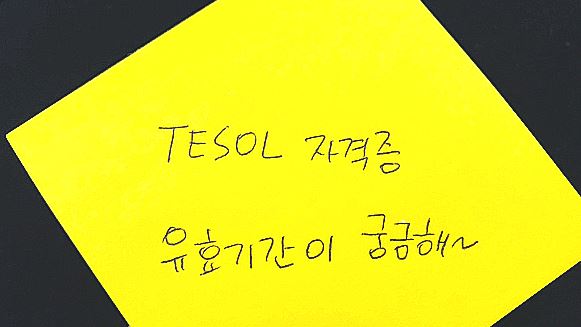 TESOL 자격증
유효기간이 궁금해~